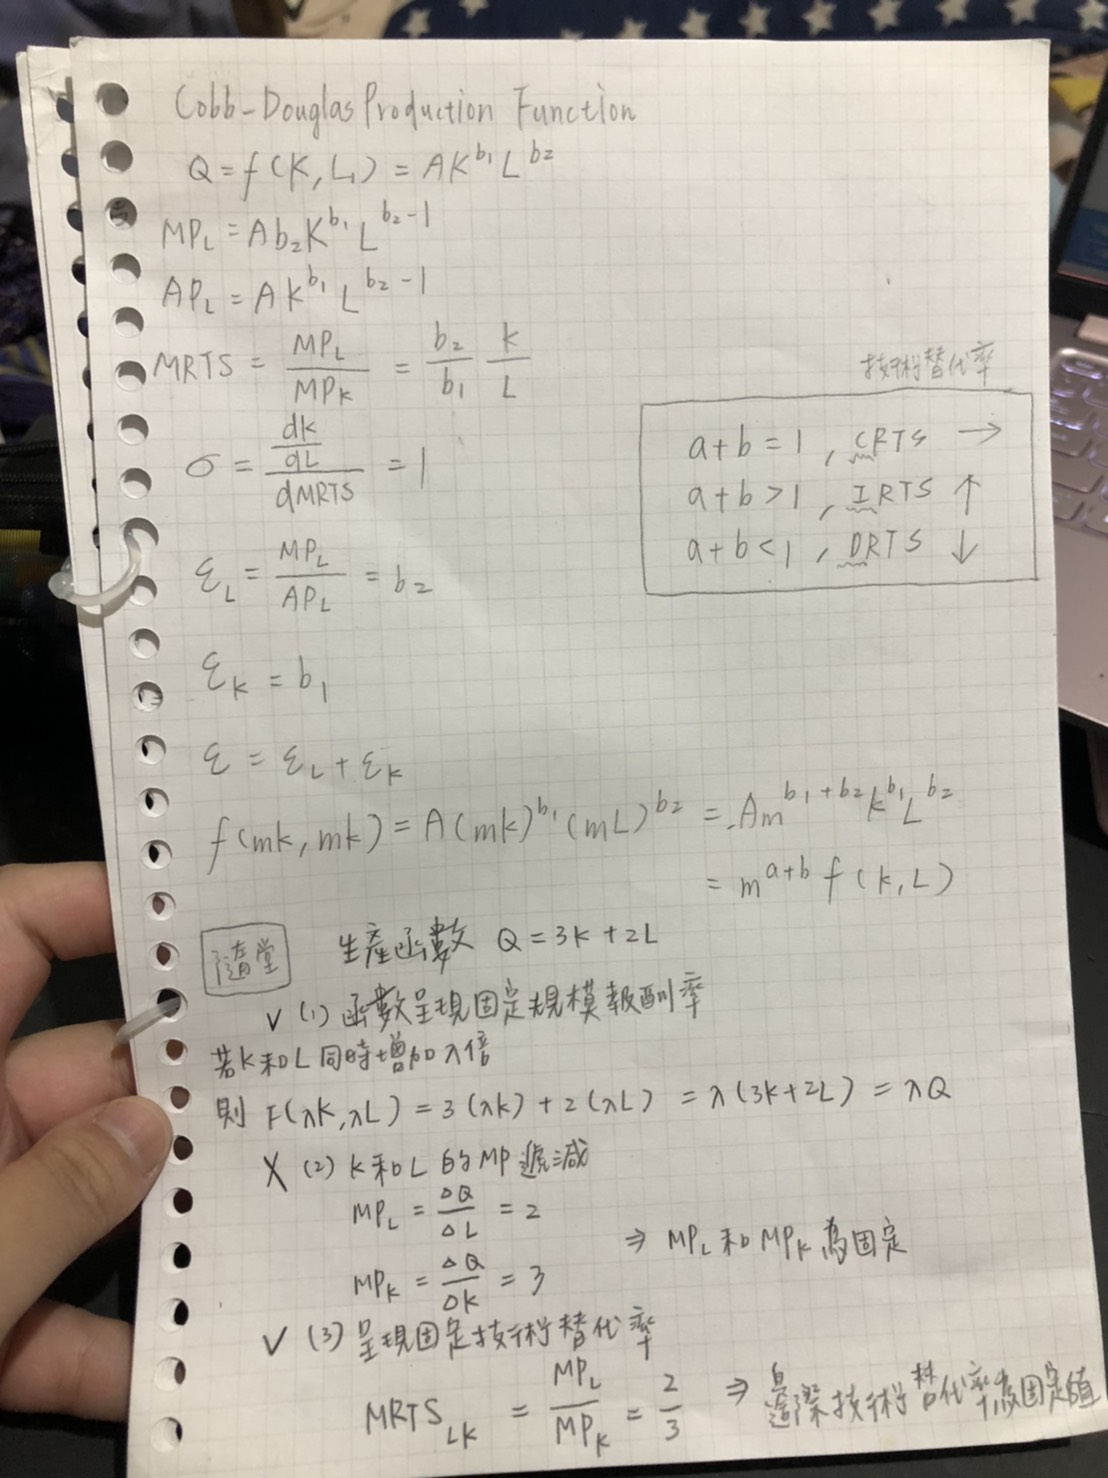 Cobb-Douglas Production Function
Q = f(K, L) = AK^b₁ L^b₂
MP_L = A b₂ K^b₁ L^(b₂-1)
AP_L = A K^b₁ L^(b₂-1)
MRTS = MP_L / MP_K = b₂/b₁ K/L
技術替代率
a+b=1, CRTS →
a+b>1, IRTS ↑
a+b<1, DRTS ↓
σ = (dK/dL) / dMRTS = 1
ε_L = MP_L / AP_L = b₂
ε_K = b₁
ε = ε_L + ε_K
f(mk, mk) = A(mk)^b₁ (mL)^b₂ = Am^(b₁+b₂) k^b₁ L^b₂
= m^(a+b) f(k, L)
隨堂 生產函數 Q = 3K + 2L
V (1) 函數呈現固定規模報酬率
若K和L同時增加λ倍
則 F(λK, λL) = 3(λK) + 2(λL) = λ(3K+2L) = λQ
X (2) K和L的MP遞減
MP_L = ΔQ/ΔL = 2
⇒ MP_L和MP_K為固定
MP_K = ΔQ/ΔK = 3
V (3) 呈現固定技術替代率
MRTS_LK = MP_L / MP_K = 2/3 ⇒ 邊際技術替代率為固定值